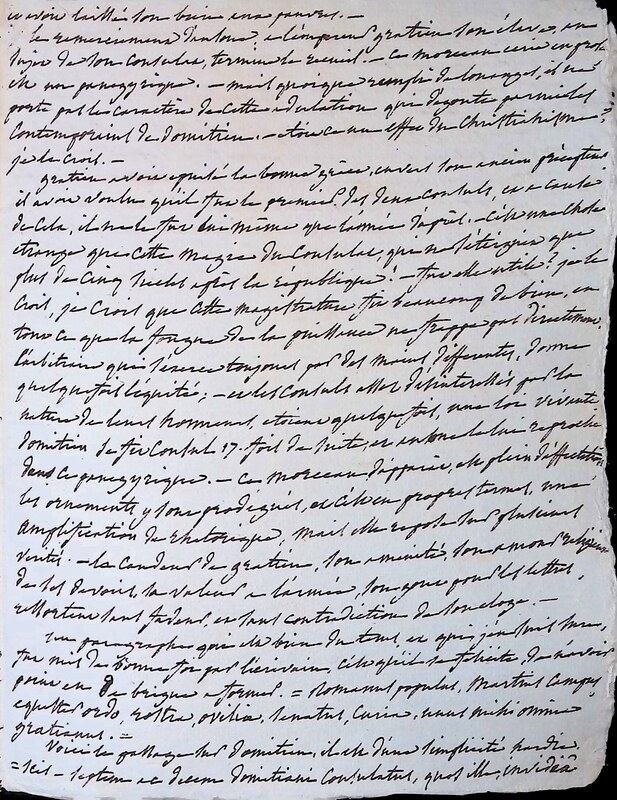 avoir laissé son bien aux pauvres. —
le remerciement d'ausone a l'empereur gratien son élève, au
sujet de son consulat, termine le recueil. — ce morceau écrit en prose
est un panegyrique. — mais quoique remple de louanges, il ne
porte pas le caractère de cette adulation qui dégoute parmi les
contemporains de domitien. — étoit ce un effet du Christianisme?
je le crois. —
gratien avoit épuisé la bonne grâce, envers son ancien précepteur
il avoit voulu qu'il fut le premier des deux consuls, et a cause
de cela, il ne le fut lui même que l'année d'après. — C'est une chose
étrange que cette magie du Consulat, qui ne s'éteignit que
plus de cinq siècles après la république! — fut elle utile? je le
crois, je crois que cette magistrature fit beaucoup de bien, en
tout ce que la fougue de la puissance ne frappa pas directement.
l'arbitraire que s'exerce toujours par des mains différentes, donne
quelquefois l'équité; — et les Consuls assez désintéressés par la
nature de leurs honneurs, etoient quelquefois, une loi vivante
domitien se fit Consul 17. fois de suite, et ausone le lui reproche
dans ce panegyrique. — ce morceau d'apparat, est plein d'affectation
les ornements y sont prodigués, et c'est en propres termes, une
amplification de rhetorique, mais elle repose sur plusieurs
verités. — la candeur de gratien, son amenité, son amour religieux
de ses devoirs, sa valeur a l'armée, son gout pour les lettres,
ressortent sans fadeur, et sans contradiction de son eloge. —
un paragraphe qui est bien du tems, et qui j'en suis sure,
fut mis de bonne foi par l'écrivain, c'est qu'il se felicite, de n'avoir
point eu de brigue a former. = Romanus populus, Martius Campus,
equester ordo, rostra, ovilia, senatus, Curia, unus mihi omnia
gratianus. =
Voici le passage sur domitien, il est d'une simplicité hardie.
= Scis — septem ac decem domitiani Consulatus, quos ille, invidiâ